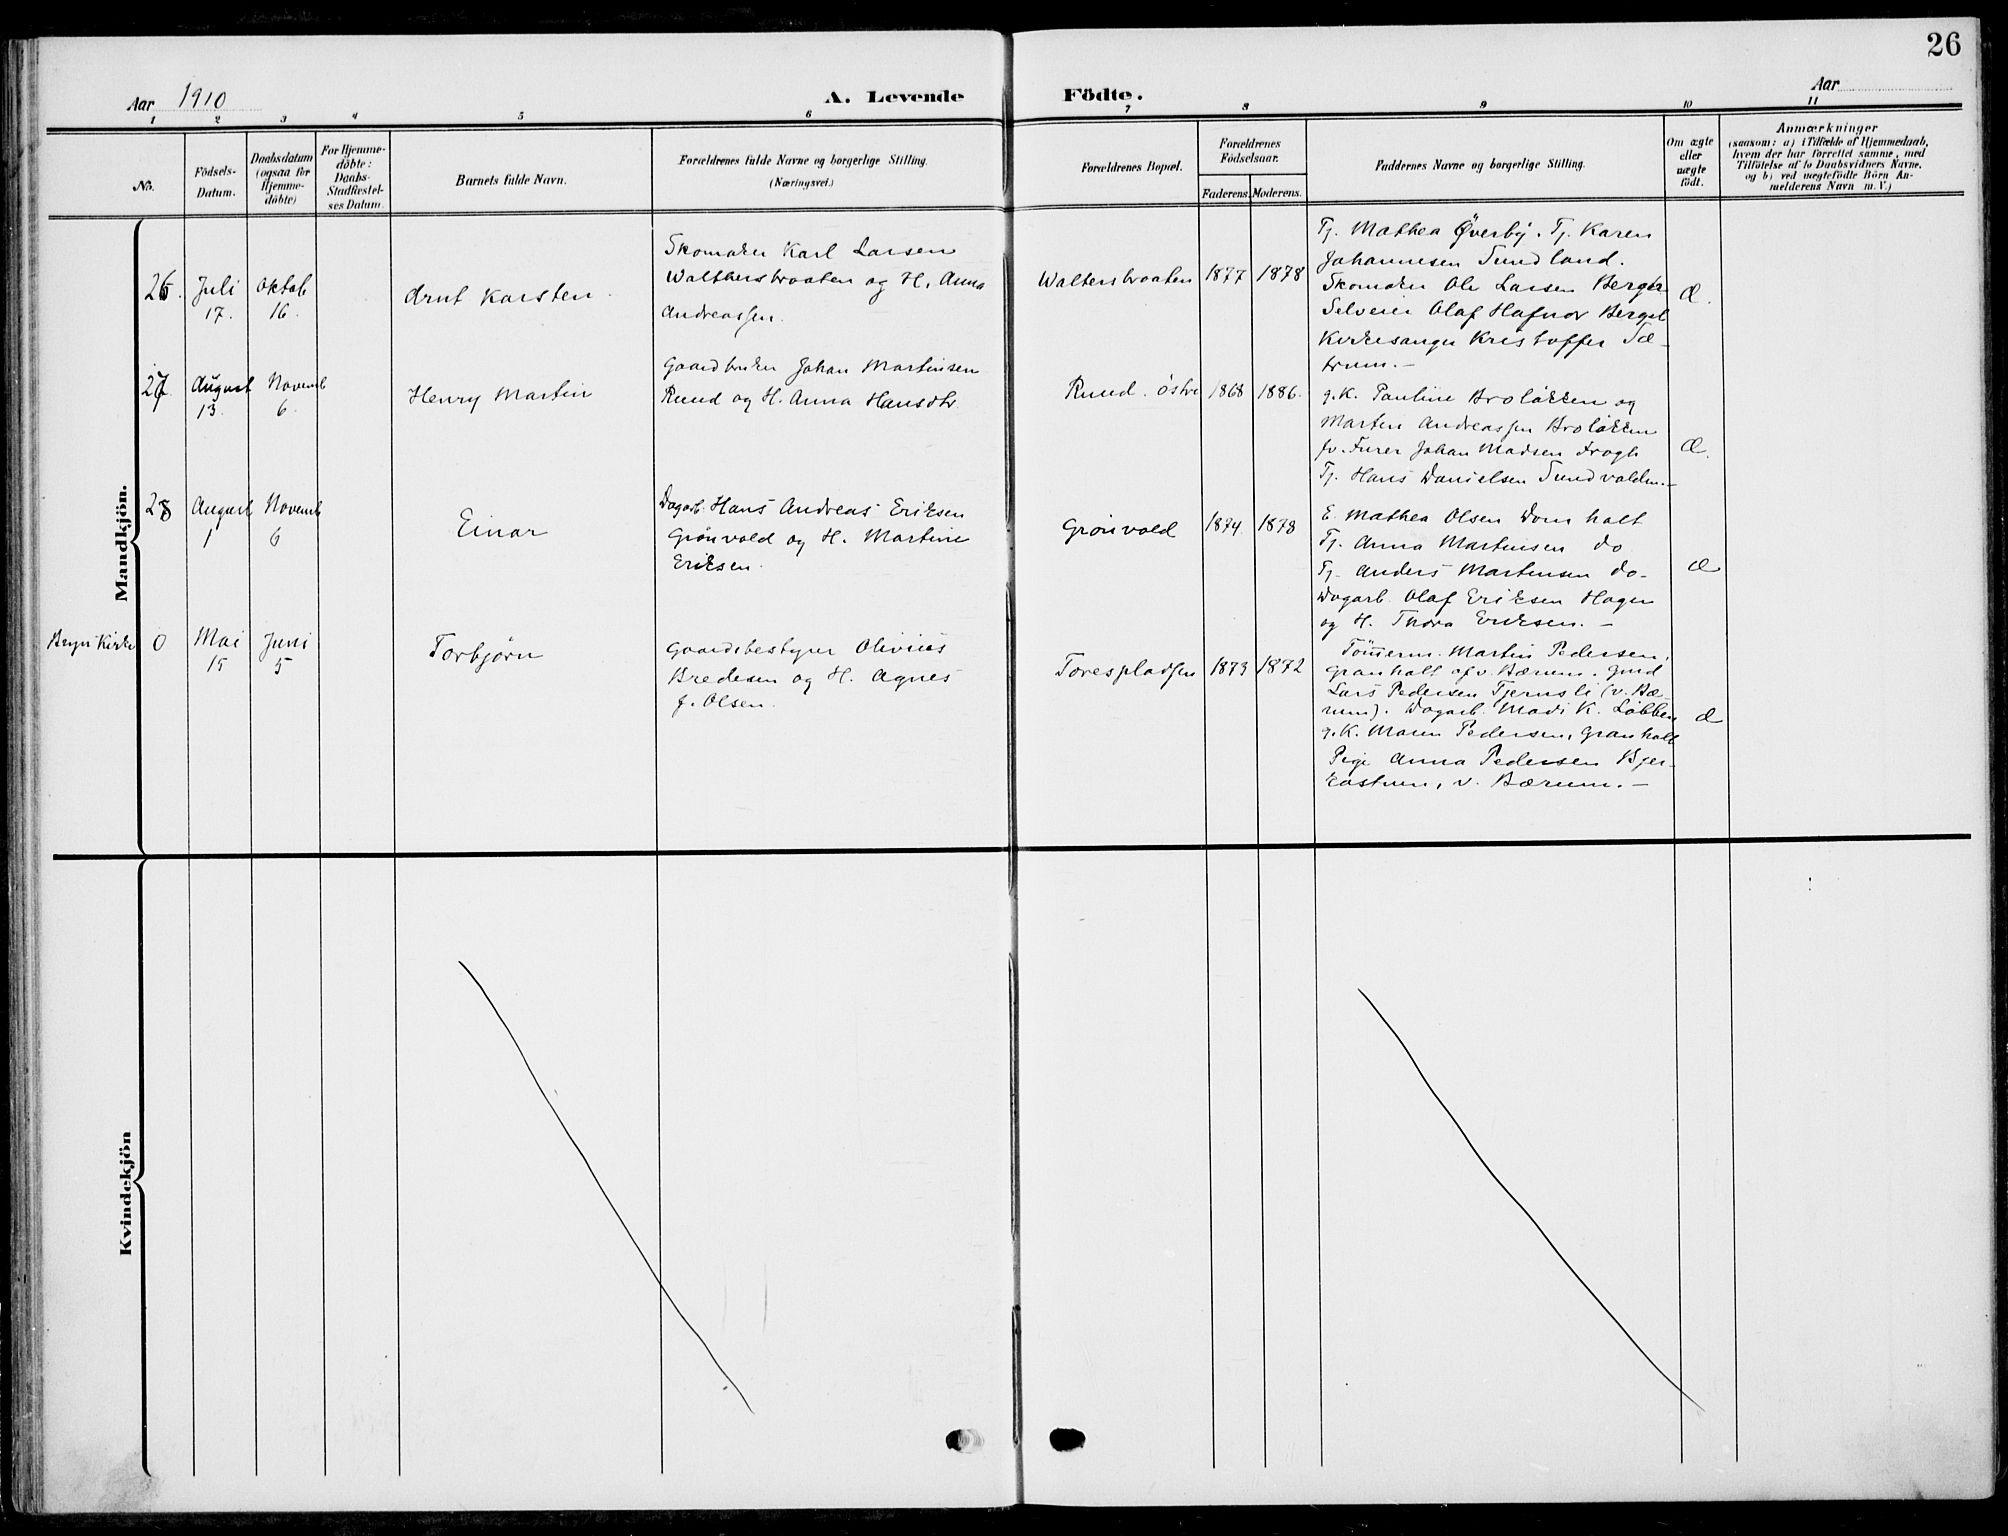 26
Aar 1910
A. Levende Födte.
Aar
1 2 3 4 5 6 7 8 9 10 11
No.
Födsels-
Datum.
Daabsdatum
(ogsaa for
Hjemme-
döbte)
For Hjemme-
döbte:
Daabs-
Stadfæstel-
ses Datum.
Barnets fulde Navn.
Forældrenes fulde Navne og borgerlige Stilling.
(Næringsvei.)
Forældrenes Bopæl.
Forældrenes
Födselsaar.
Faderens. Moderens.
Faddernes Navne og borgerlige Stilling.
Om ægte
eller
uægte
födt.
Anmærkninger
(saasom: a) i Tilfælde af Hjemmedaab,
hvem der har forrettet samme, med
Tilföielse af to Daabsvidners Navne.
og b) ved uægtefödte Börn An-
melderens Navn m. V.)
Mandkjön.
26.
Juli
17.
Oktob
16.
Arnt Karsten.
Skomaker Karl Larsen
Waltherstraaten og H. Anna
Andreassen.
Walterstraaten
1877
1878
Tj. Mathea Øverby. Tj. Karen
Johannesen Sundland.
Skomaker Ole Larsen Berger
Selveier Olaf Hafnor Berget
Kirkesanger Kristoffer Sæ-
trum.-
Æ.
27
August
13.
Novemb
6.
Henry Martin
Gaardbruker Johan Martinsen
Rund og H. Anna Hansdtr.
Rund. østre
1868
1886.
g.K. Pauline Broløkken og
Marten Andreassen Broløkken
fv. Furer Johan Madsen Frogh
Tj. Hans Danielsen Sundvolden.-
Æ.
28
August
1
Novemb
6
Einar
Dagarb. Hans Andreas Eriksen
Grønvold og H. Martine
Eriksen.
Grønvold
1874
1878
E. Mathea Olsen Domholt
Tj. Anna Martinsen do
Tj. Anders Martinsen do-
Dagarb. Olaf Eriksen Hagen
og H. Thora Eriksen.-
Æ
Bryn Kirke
0
Mai
15
Juni
5
Torbjørn
Gaardsbestyrer Olivius
Bredesen og H. Agnes
f. Olsen.
Torespladsen
1873
1872
Tømmerm. Martin Pedersen,
Granholt af v. Bærum. Gmd
Lars Pedersen Tjernsli (v. Bæ-
rum). Dagarb. Mads K. Løbben
g.K. Maren Pedersen, Granholt
Pige Anna Pedersen Bjer-
kastuen, v. Bærum.-
Æ
Kvindekjön